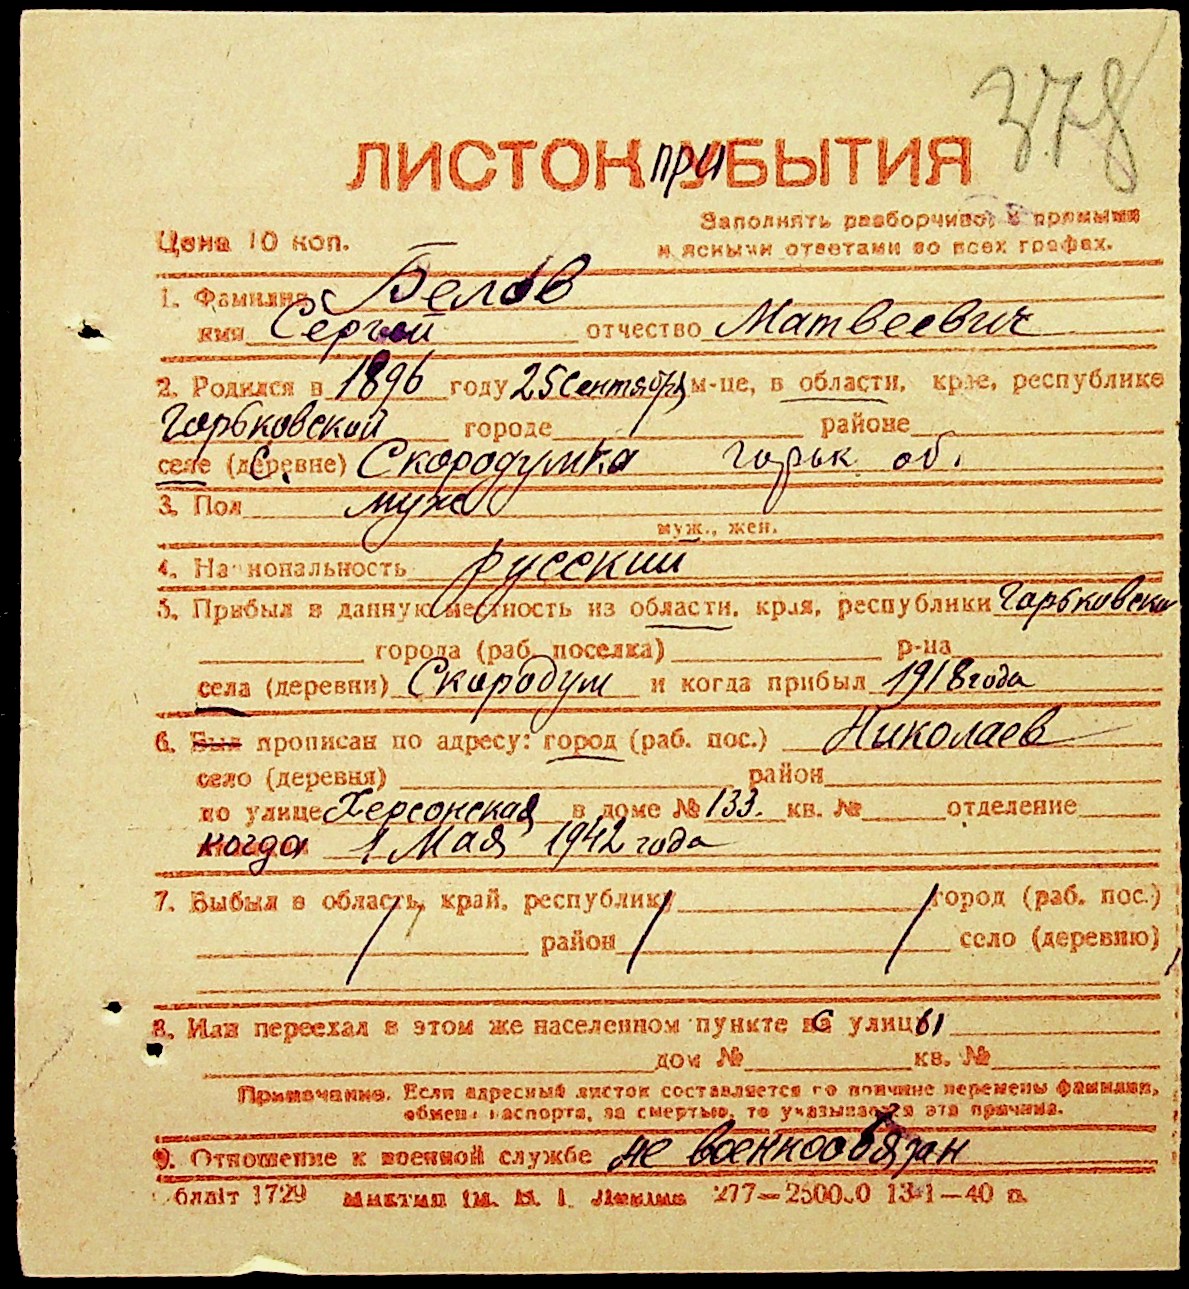 378
ЛИСТОК ПРИБЫТИЯ
Заполнять разборчиво, и прямыми
Цена 10 коп.
и ясными ответами во всех графах.
1. Фамилия Белов
имя Сергей отчество Матвеевич
2. Родился в 1896 году 25 Сентября м-це, в области, крае, республике
Горьковской городе районе
селе (деревне) с. Скородумка горьк об.
3. Пол муж
муж., жен.
4. Национальность русский
5. Прибыл в данную местность из области, края, республики Горьковской
города (раб. поселка) р-на
села (деревни) Скородум и когда прибыл 1918 года
6. Был прописан по адресу: город (раб. пос.) Николаев
село (деревня) район
по улице Херсонская в доме № 133. кв. № отделение
когда 1 Мая 1942 года
7. Выбыл в область, край, республику город (раб. пос.)
район село (деревню)
8. Или переехал в этом же населенном пункте с улицы
дом № кв. №
Примечание. Если адресный листок составляется по причине перемены фамилии,
обмена паспорта, за смертью, то указывается эта причина.
9. Отношение к военной службе не военнообязан
Облліт 1729 Миктип ім. В. І. Леніна 277—25000 13-1—40 п.